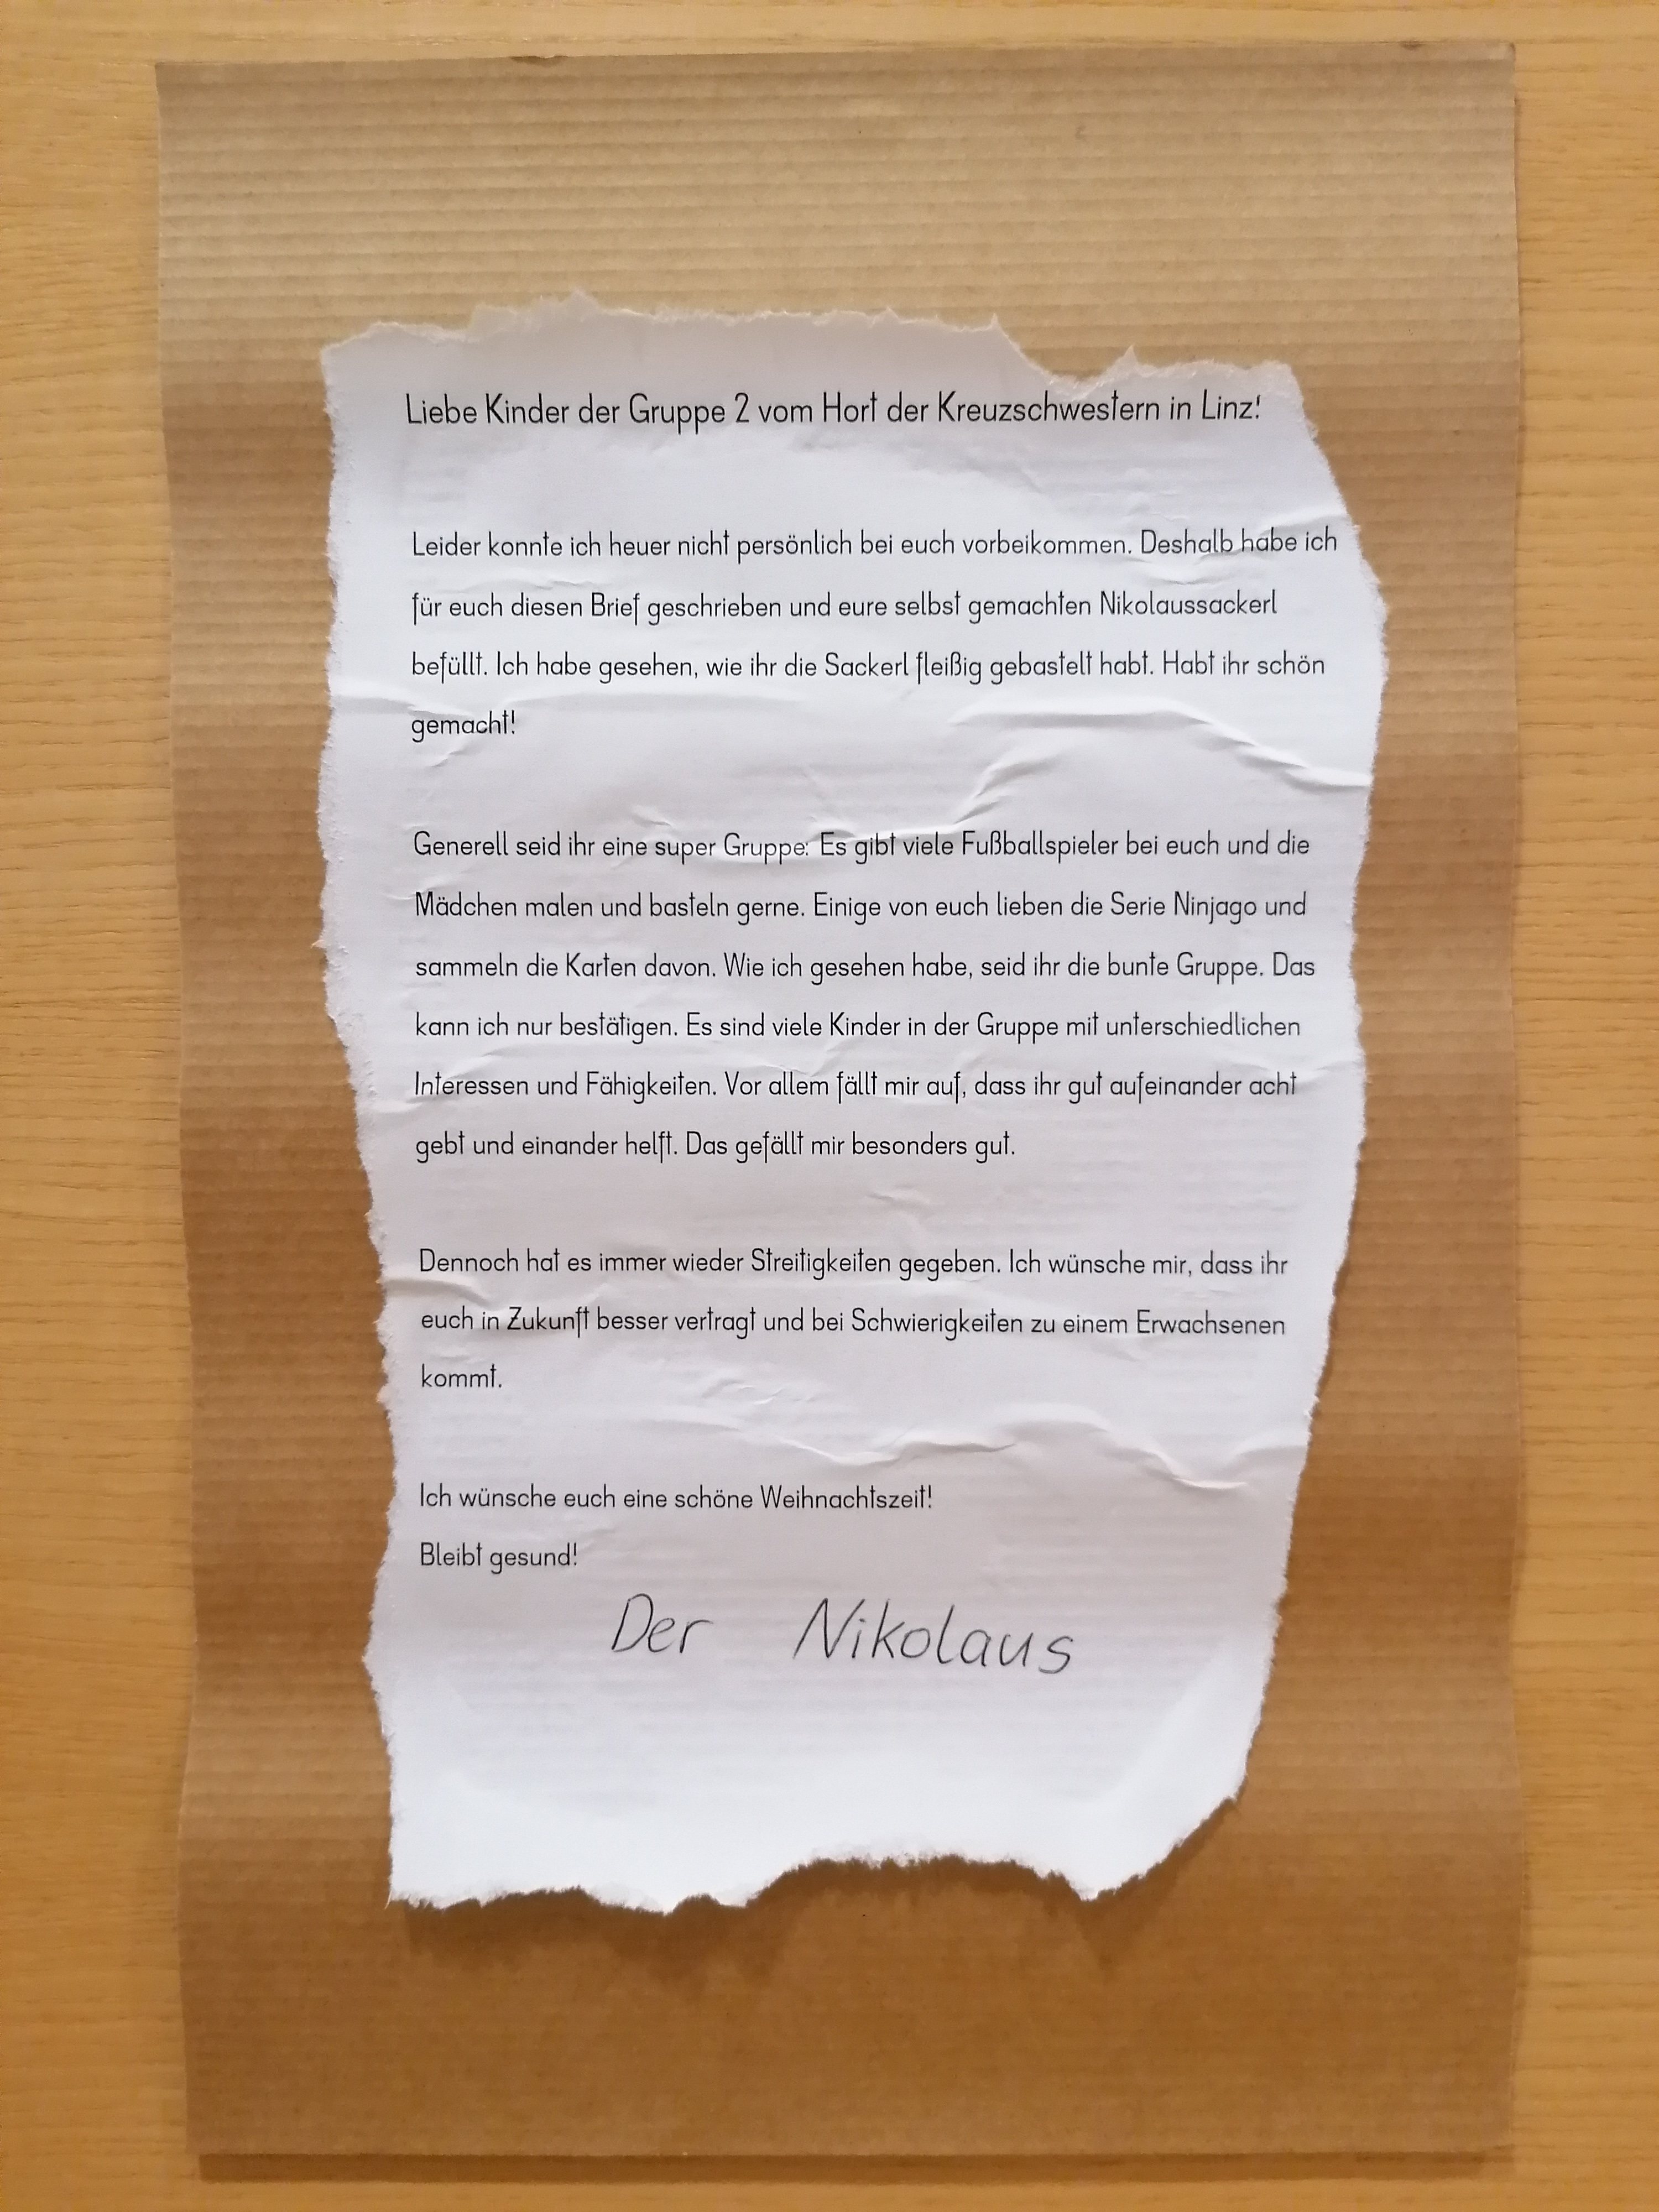 Liebe Kinder der Gruppe 2 vom Hort der Kreuzschwestern in Linz!
Leider konnte ich heuer nicht persönlich bei euch vorbeikommen. Deshalb habe ich
für euch diesen Brief geschrieben und eure selbst gemachten Nikolaussackerl
befüllt. Ich habe gesehen, wie ihr die Sackerl fleißig gebastelt habt. Habt ihr schön
gemacht!
Generell seid ihr eine super Gruppe: Es gibt viele Fußballspieler bei euch und die
Mädchen malen und basteln gerne. Einige von euch lieben die Serie Ninjago und
sammeln die Karten davon. Wie ich gesehen habe, seid ihr die bunte Gruppe. Das
kann ich nur bestätigen. Es sind viele Kinder in der Gruppe mit unterschiedlichen
Interessen und Fähigkeiten. Vor allem fällt mir auf, dass ihr gut aufeinander acht
gebt und einander helft. Das gefällt mir besonders gut.
Dennoch hat es immer wieder Streitigkeiten gegeben. Ich wünsche mir, dass ihr
euch in Zukunft besser vertragt und bei Schwierigkeiten zu einem Erwachsenen
kommt.
Ich wünsche euch eine schöne Weihnachtszeit!
Bleibt gesund!
Der Nikolaus